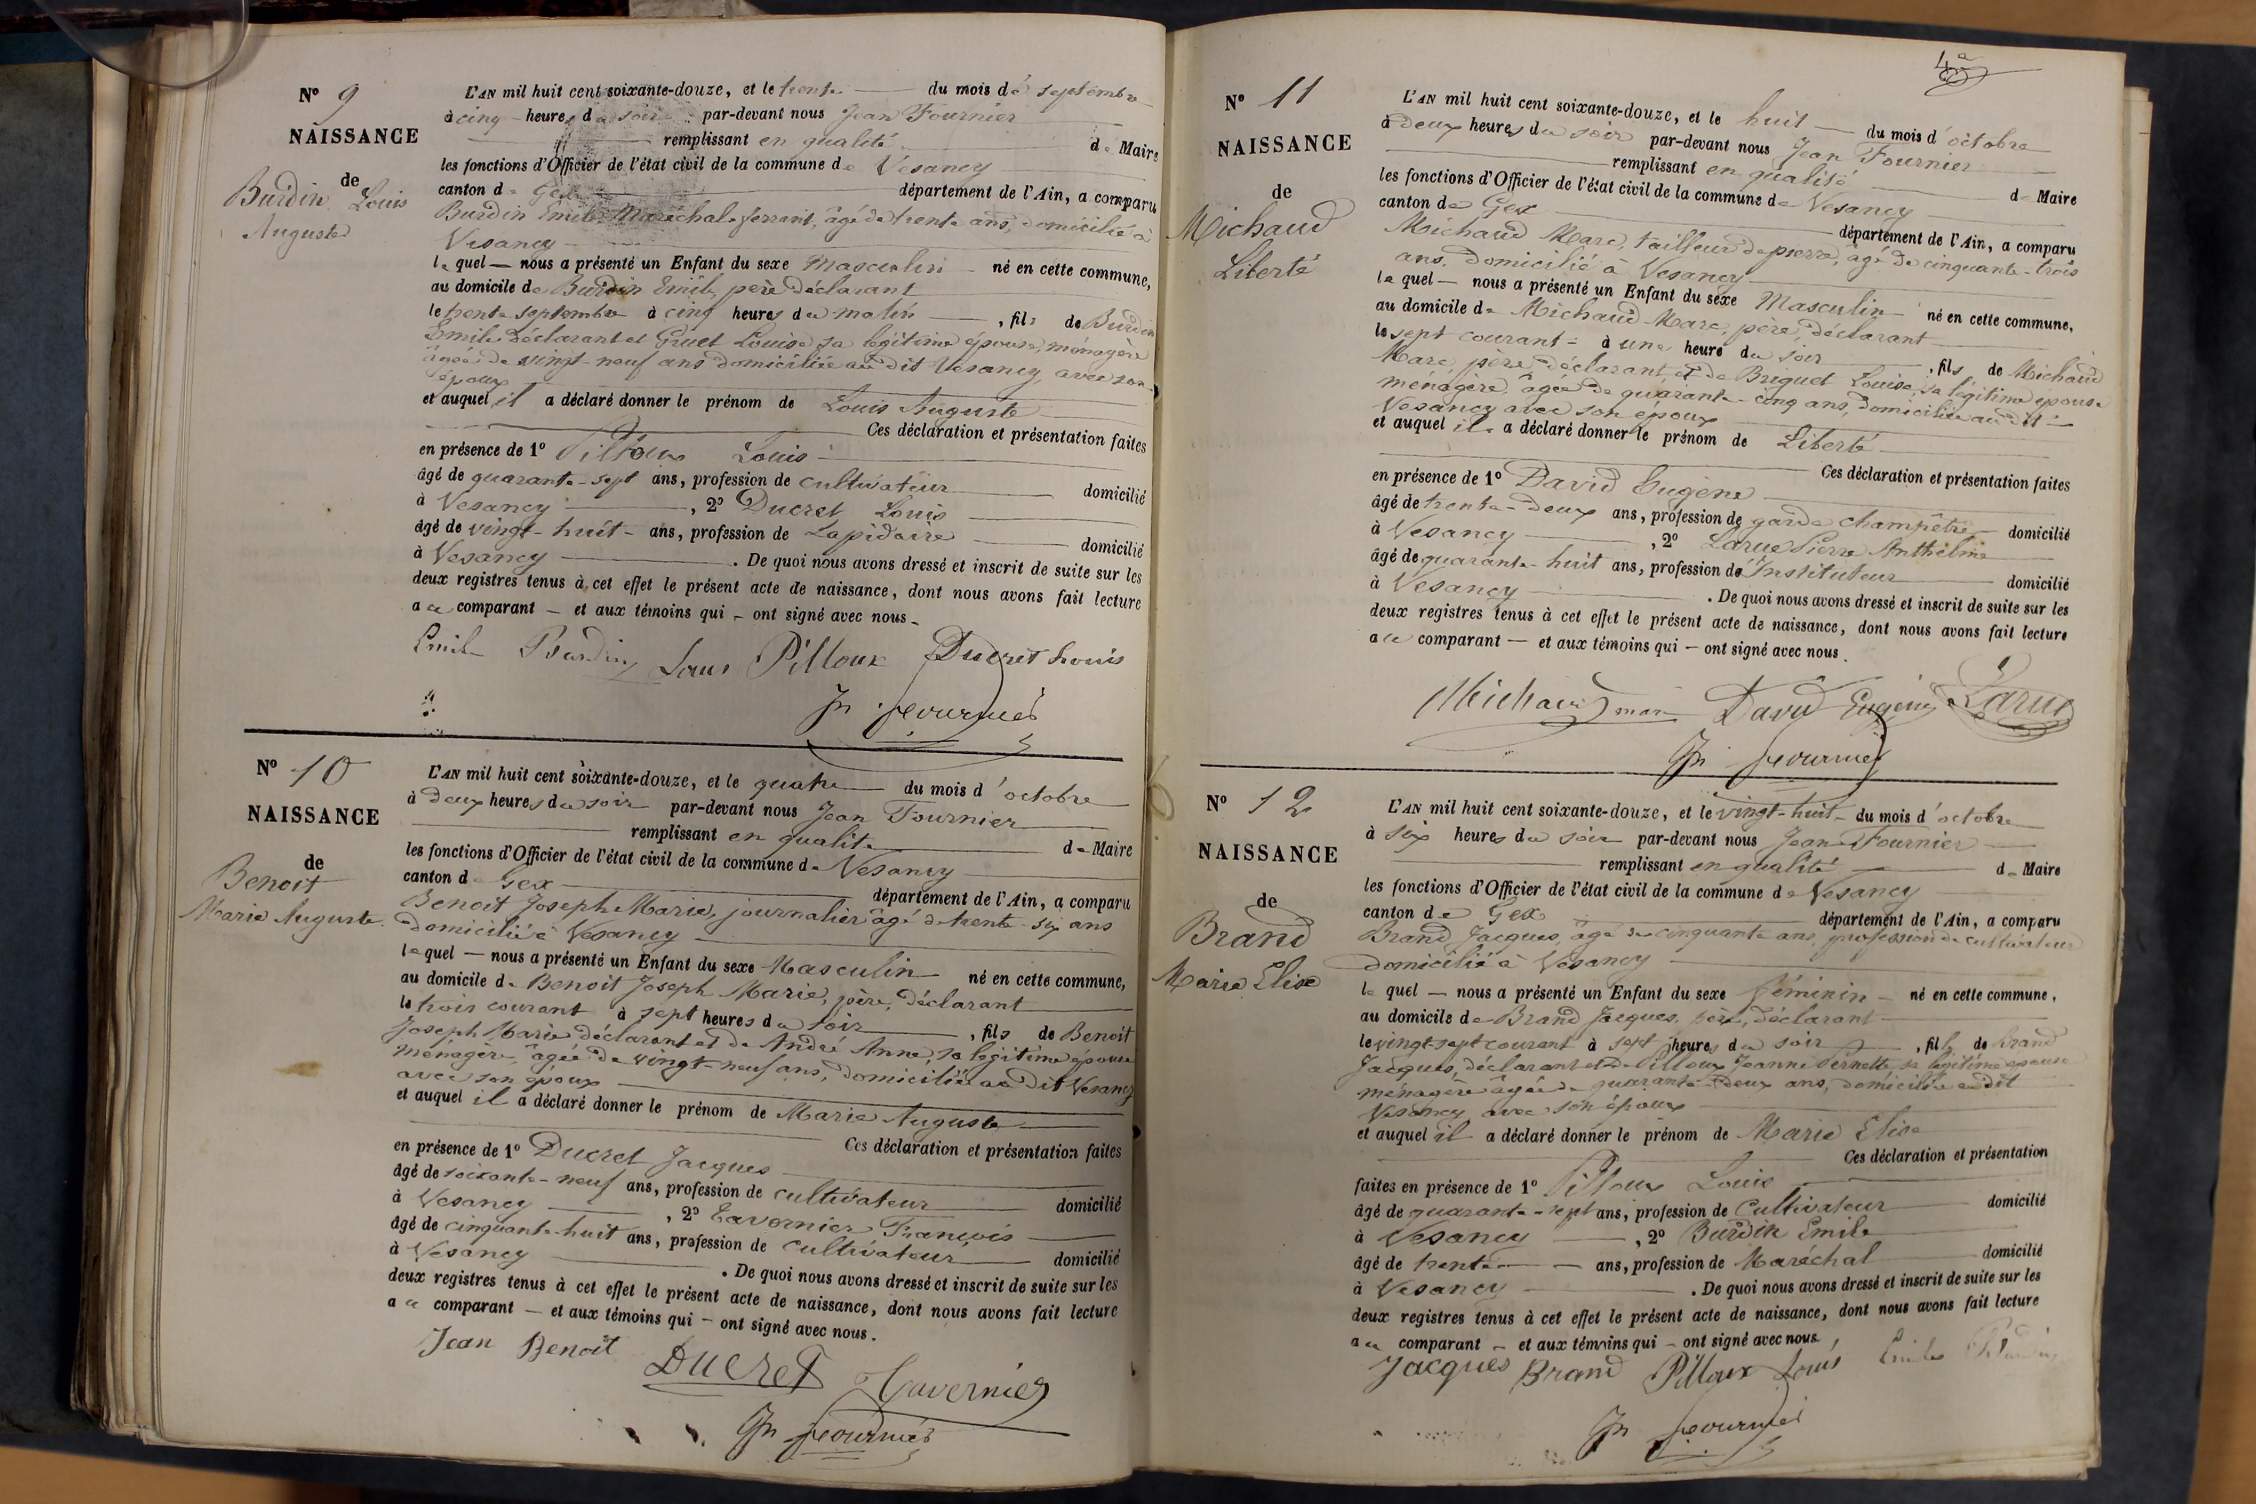 N° 9
NAISSANCE
de
Burdin Louis
Auguste
L'AN mil huit cent soixante-douze, et le trente du mois de septembre
à cinq heures du soir par-devant nous Jean Fournier
remplissant en qualité de Maire
les fonctions d'Officier de l'état civil de la commune de Vesancy
canton de Gex département de l'Ain, a comparu
Burdin Emile Maréchal ferrant, âgé de trente ans, domicilié à
Vesancy
lequel nous a présenté un Enfant du sexe Masculin né en cette commune,
au domicile de Burdin Emile, père déclarant
le trente septembre à cinq heures du matin, fils de Burdin
Emile déclarant et Gruet Louise, sa légitime épouse, ménagère
âgée de vingt-neuf ans domiciliée au dit Vesancy, avec son
époux
et auquel il a déclaré donner le prénom de Louis Auguste
Ces déclaration et présentation faites
en présence de 1° Pilloux Louis
âgé de quarante-sept ans, profession de cultivateur domicilié
à Vesancy, 2° Ducret Louis
âgé de vingt-huit ans, profession de Lapidaire domicilié
à Vesancy. De quoi nous avons dressé et inscrit de suite sur les
deux registres tenus à cet effet le présent acte de naissance, dont nous avons fait lecture
au comparant et aux témoins qui ont signé avec nous.
Emile Burdin Louis Pilloux Ducret Louis
Jn Fournier
N° 10
NAISSANCE
de
Benoit
Marie Auguste
L'AN mil huit cent soixante-douze, et le quatre du mois d'octobre
à deux heures du soir par-devant nous Jean Fournier
remplissant en qualité de Maire
les fonctions d'Officier de l'état civil de la commune de Vesancy
canton de Gex département de l'Ain, a comparu
Benoit Joseph Marie, journalier âgé de trente-six ans
domicilié à Vesancy
lequel nous a présenté un Enfant du sexe Masculin né en cette commune,
au domicile de Benoit Joseph Marie, père, déclarant
le trois courant à sept heures du soir, fils de Benoit
Joseph Marie déclarant et de André Anne, sa légitime épouse
ménagère, âgée de vingt-neuf ans, domiciliée au dit Vesancy
avec son époux
et auquel il a déclaré donner le prénom de Marie Auguste
Ces déclaration et présentation faites
en présence de 1° Ducret Jacques
âgé de soixante-neuf ans, profession de cultivateur domicilié
à Vesancy, 2° Tavernier François
âgé de cinquante-huit ans, profession de cultivateur domicilié
à Vesancy. De quoi nous avons dressé et inscrit de suite sur les
deux registres tenus à cet effet le présent acte de naissance, dont nous avons fait lecture
au comparant et aux témoins qui ont signé avec nous.
Jean Benoit Ducret Tavernier
Jn Fournier
4
N° 11
NAISSANCE
de
Michaud
Liberté
L'AN mil huit cent soixante-douze, et le huit du mois d'octobre
à deux heures du soir par-devant nous Jean Fournier
remplissant en qualité de Maire
les fonctions d'Officier de l'état civil de la commune de Vesancy
canton de Gex département de l'Ain, a comparu
Michaud Marc, tailleur de pierre, âgé de cinquante-trois
ans, domicilié à Vesancy
lequel nous a présenté un Enfant du sexe Masculin né en cette commune,
au domicile de Michaud Marc, père, déclarant
le sept courant à une heure du soir, fils de Michaud
Marc, père déclarant et de Briquet Louise, sa légitime épouse
ménagère, âgée de quarante-cinq ans, domiciliée au dit
Vesancy avec son époux
et auquel il a déclaré donner le prénom de Liberté
Ces déclaration et présentation faites
en présence de 1° David Eugène
âgé de trente-deux ans, profession de garde champêtre domicilié
à Vesancy, 2° Larue Pierre Anthelme
âgé de quarante-huit ans, profession de Instituteur domicilié
à Vesancy. De quoi nous avons dressé et inscrit de suite sur les
deux registres tenus à cet effet le présent acte de naissance, dont nous avons fait lecture
au comparant et aux témoins qui ont signé avec nous.
Michaud marc David Eugène Larue
Jn Fournier
N° 12
NAISSANCE
de
Brand
Marie Elise
L'AN mil huit cent soixante-douze, et le vingt-huit du mois d'octobre
à six heures du soir par-devant nous Jean Fournier
remplissant en qualité de Maire
les fonctions d'Officier de l'état civil de la commune de Vesancy
canton de Gex département de l'Ain, a comparu
Brand Jacques, âgé de cinquante ans, profession de cultivateur
domicilié à Vesancy
lequel nous a présenté un Enfant du sexe féminin né en cette commune,
au domicile de Brand Jacques, père, déclarant
le vingt-sept courant à sept heures du soir, fille de Brand
Jacques, déclarant et de Pilloux Jeanne Pernette, sa légitime épouse
ménagère âgée de quarante-deux ans, domiciliée au dit
Vesancy avec son époux
et auquel il a déclaré donner le prénom de Marie Elise
Ces déclaration et présentation
faites en présence de 1° Pilloux Louis
âgé de quarante-sept ans, profession de Cultivateur domicilié
à Vesancy, 2° Burdin Emile
âgé de trente ans, profession de Maréchal domicilié
à Vesancy. De quoi nous avons dressé et inscrit de suite sur les
deux registres tenus à cet effet le présent acte de naissance, dont nous avons fait lecture
au comparant et aux témoins qui ont signé avec nous.
Jacques Brand Pilloux Louis Emile Burdin
Jn Fournier